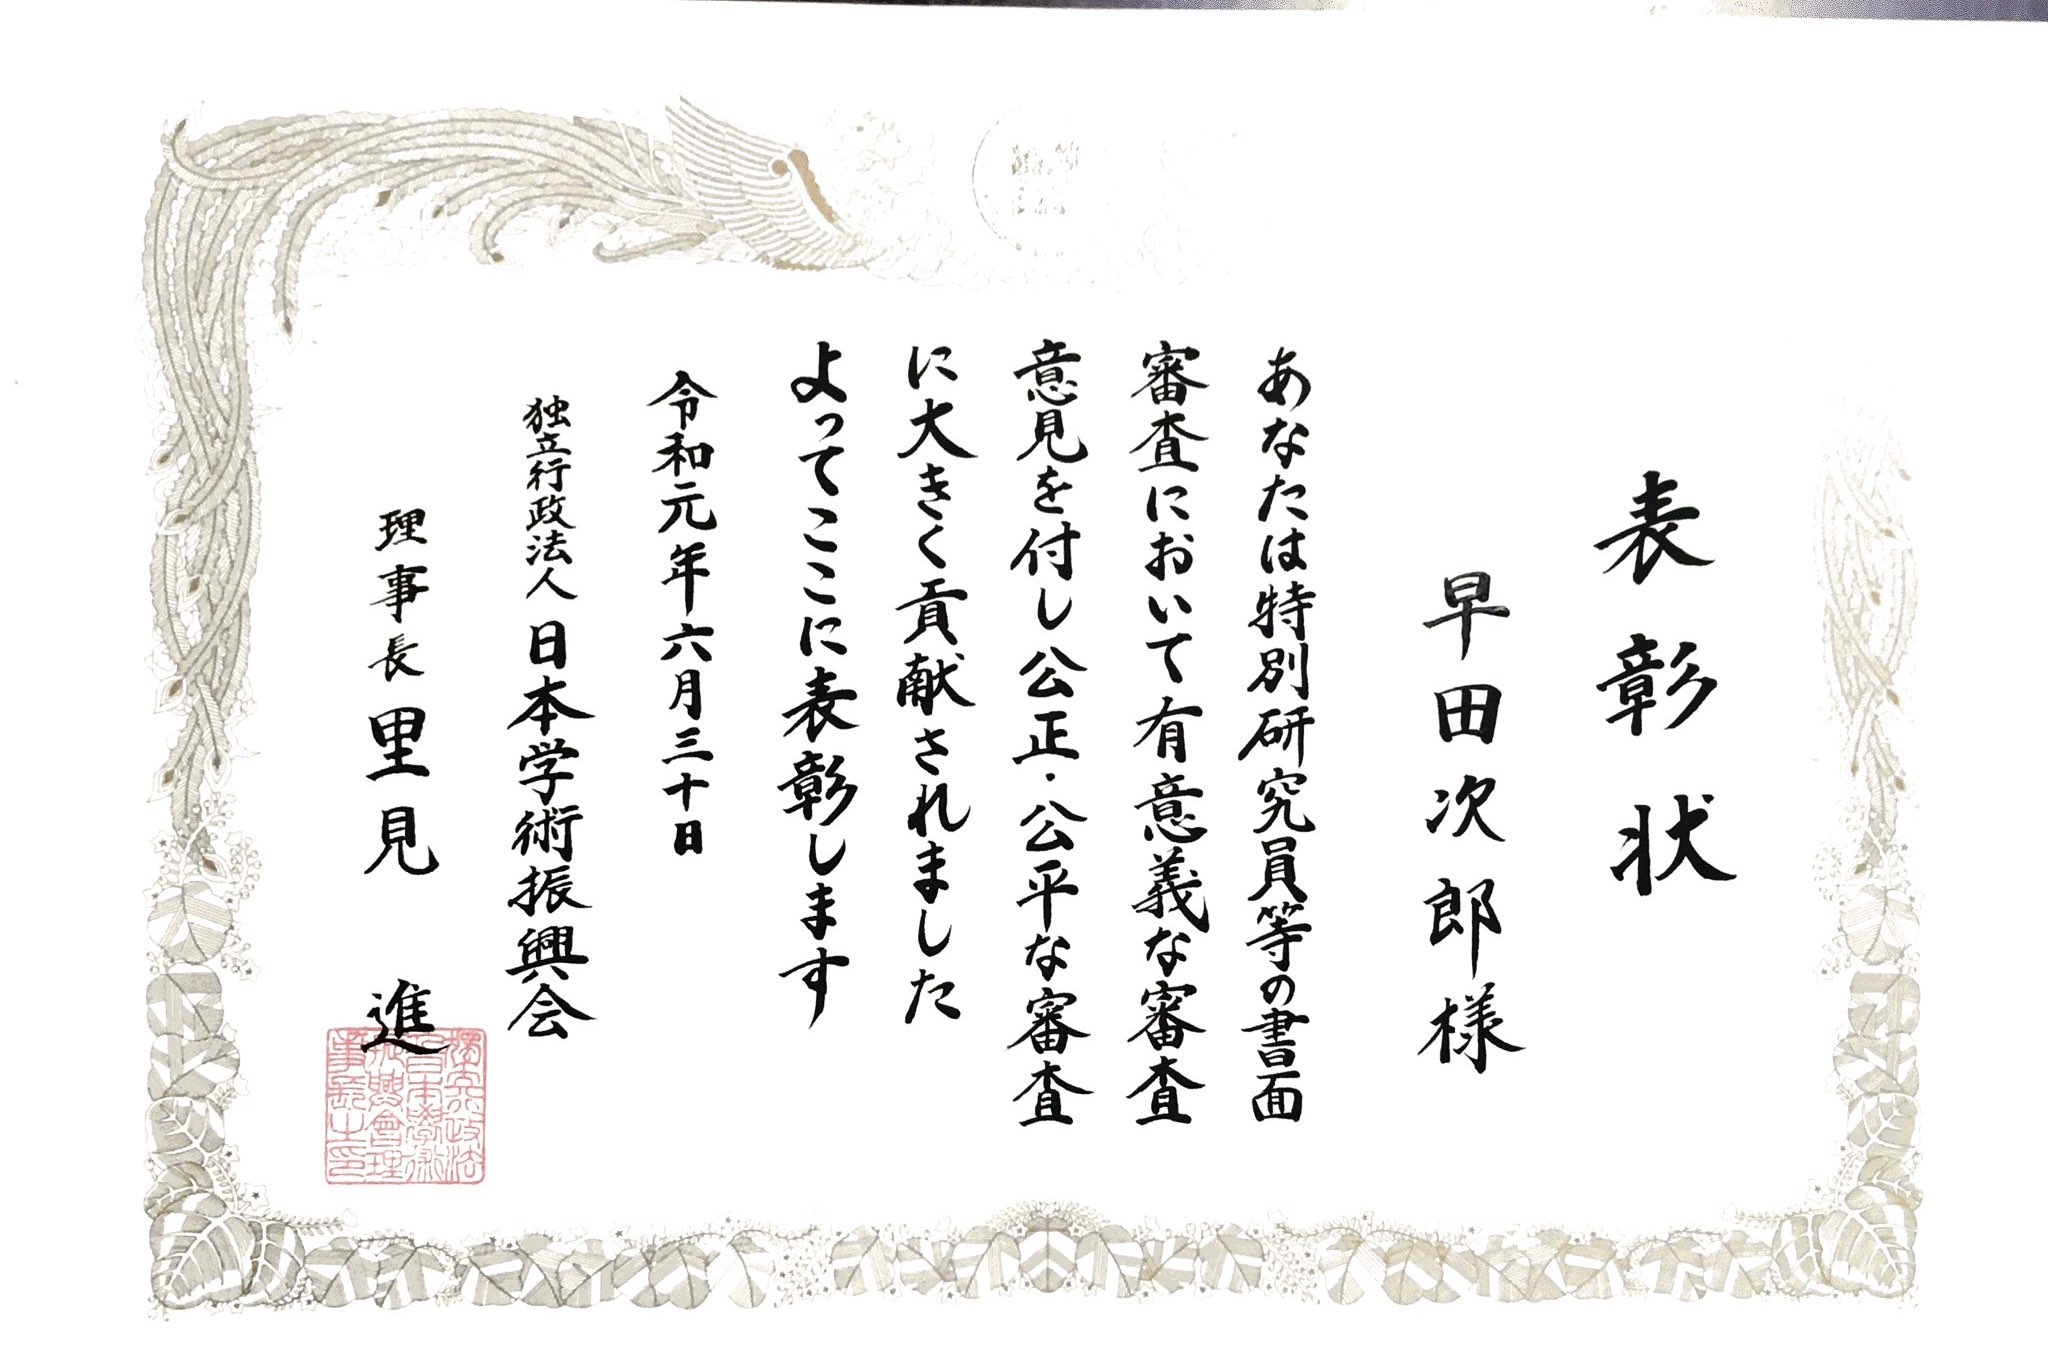 表彰状
早田次郎様
あなたは特別研究員等の書面
審査において有意義な審査
意見を付し公正・公平な審査
に大きく貢献されました
よってここに表彰します
令和元年六月三十日
独立行政法人日本学術振興会
理事長里見　進